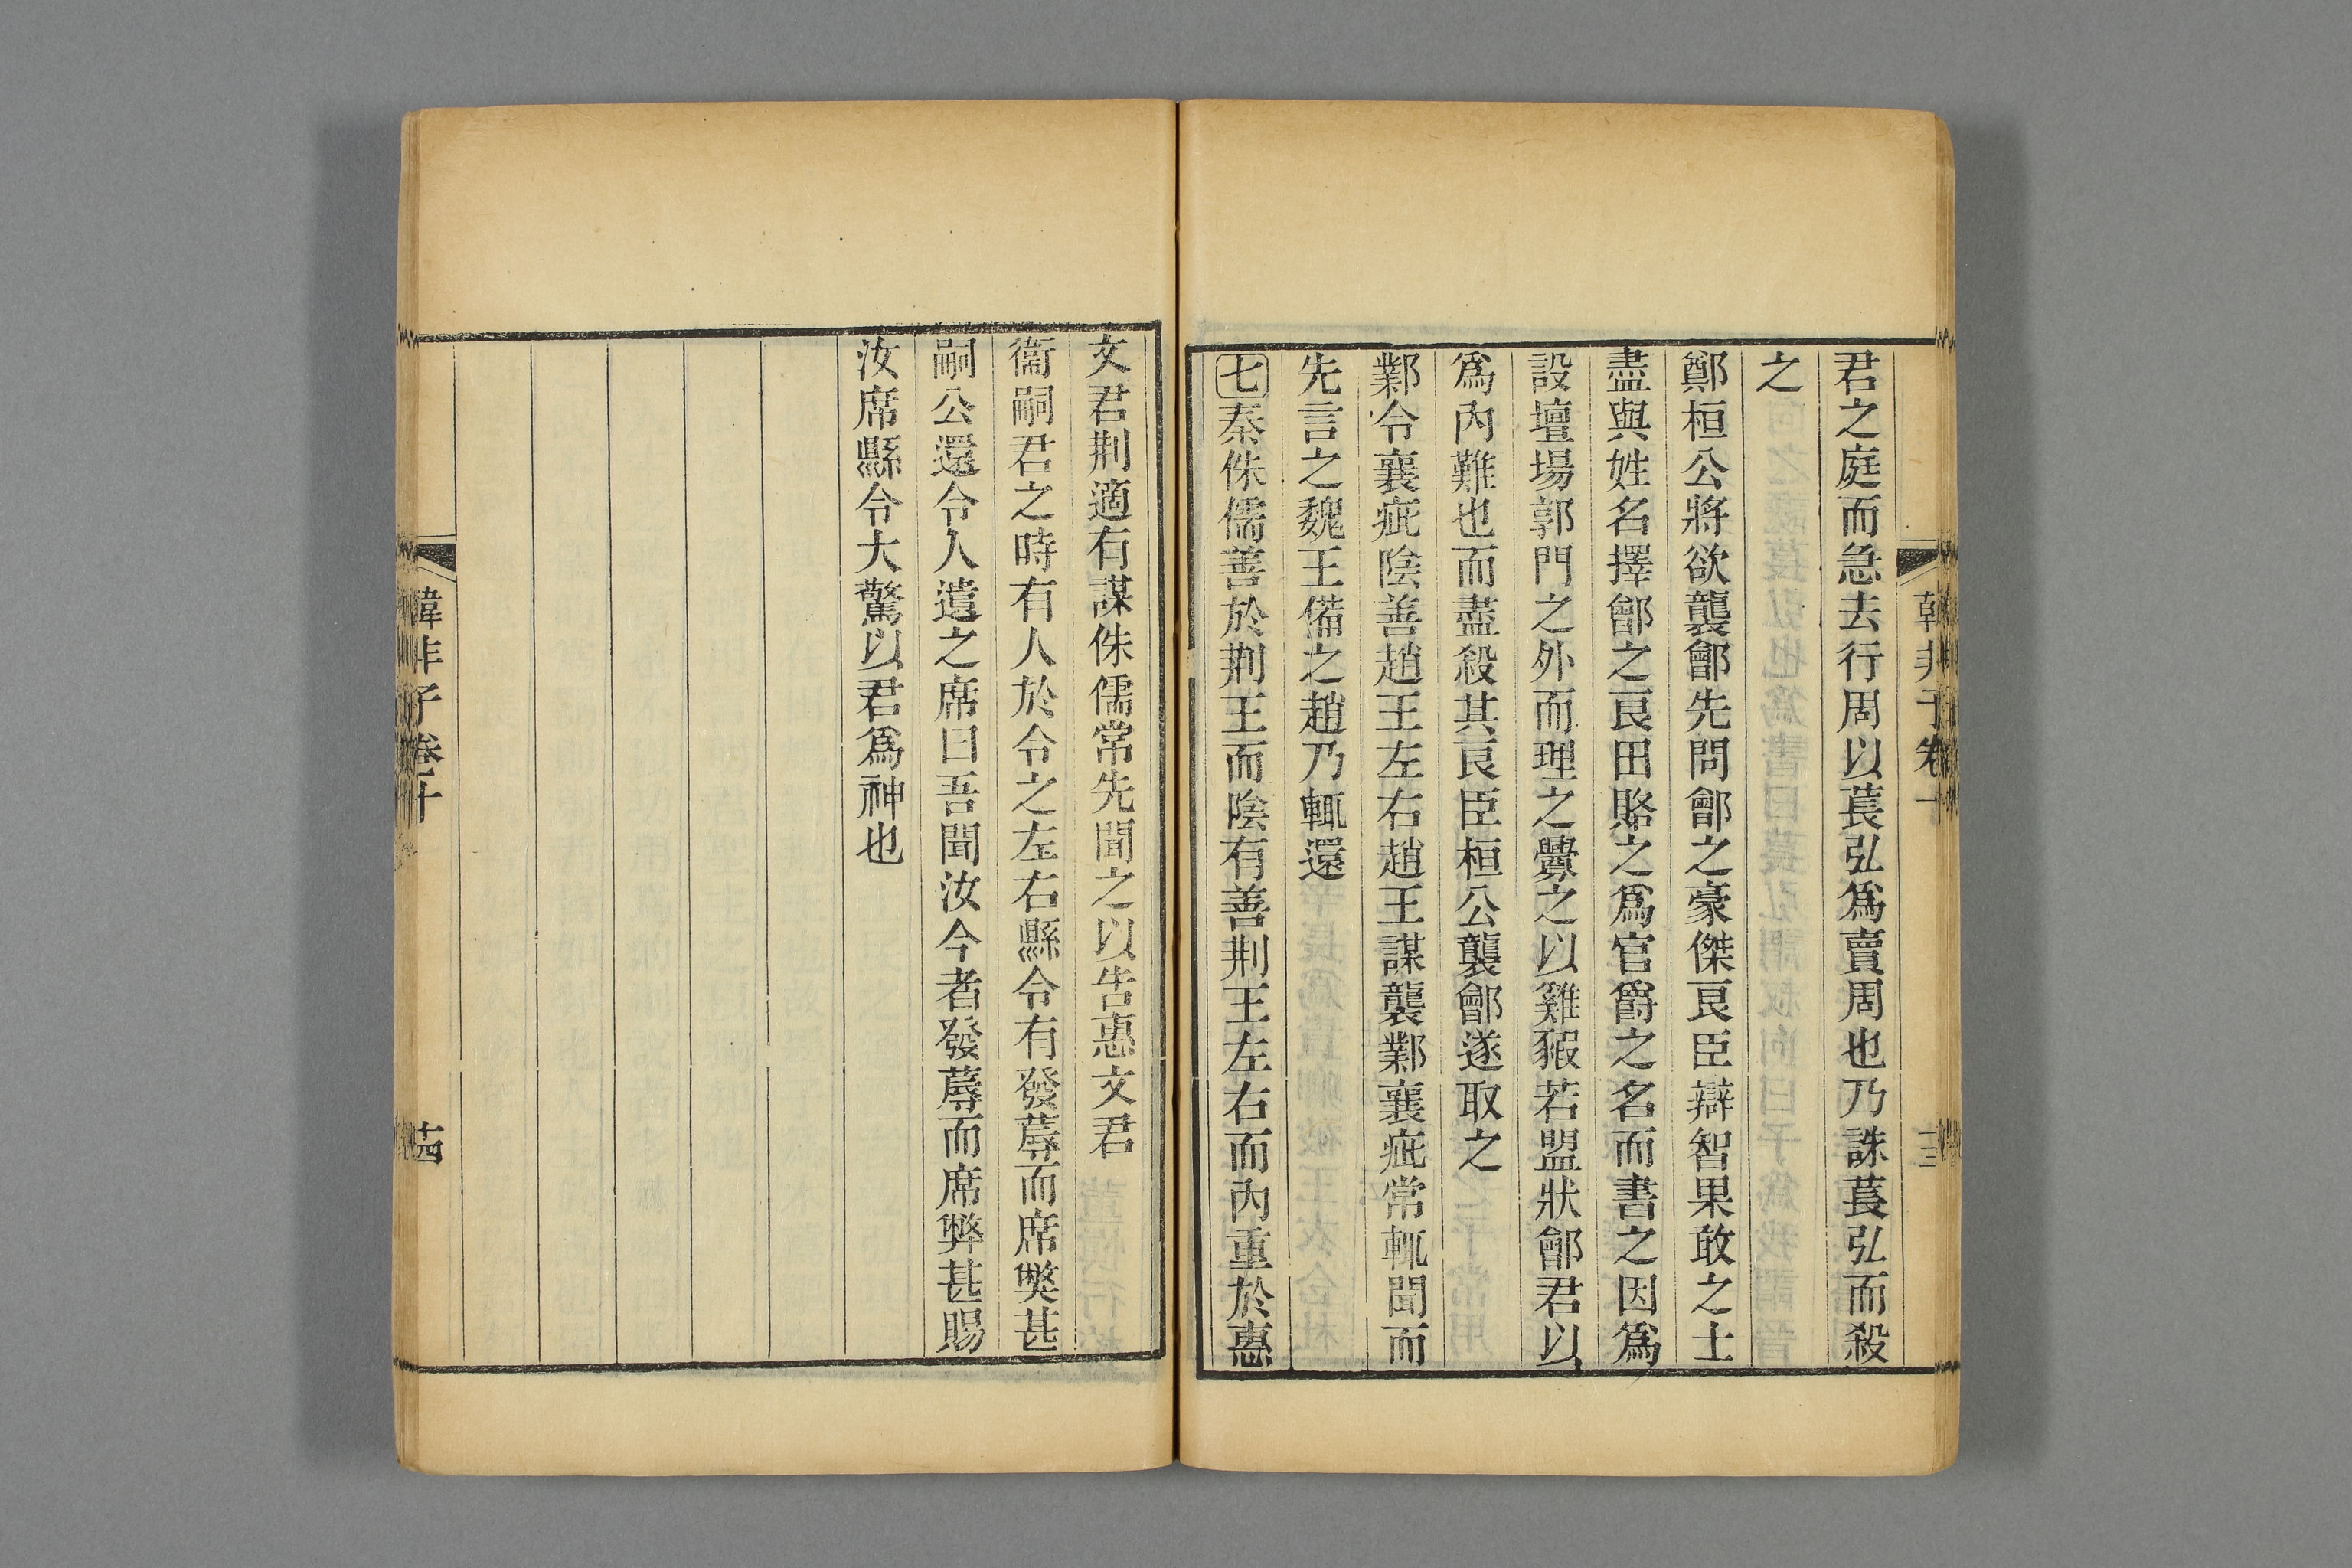 韓非子卷十
十三
君之庭而急去行周以萇弘爲賣周也乃誅萇弘而殺
之
鄭桓公將欲襲鄶先問鄶之豪傑良臣辯智果敢之士
盡與姓名擇鄶之良田賂之爲官爵之名而書之因爲
設壇場郭門之外而理之釁之以雞豭若盟狀鄶君以
爲內難也而盡殺其良臣桓公襲鄶遂取之
鄴令襄疵陰善趙王左右趙王謀襲鄴襄疵常輒聞而
先言之魏王備之趙乃輒還
七秦侏儒善於荆王而陰有善荆王左右而內重於惠
文君荆適有謀侏儒常先聞之以告惠文君
衞嗣君之時有人於令之左右縣令有發蓐而席獘甚
嗣公還令人遺之席曰吾聞汝今者發蓐而席弊甚賜
汝席縣令大驚以君爲神也
韓非子卷十
十四